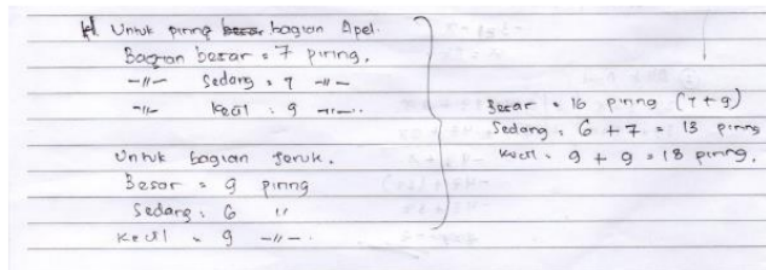 Untuk piring bagian Apel.
Bagian besar = 7 piring.
-〃- Sedang = 7 -〃-
-〃- kecil : 9 -〃-.
Untuk bagian Jeruk.
Besar = 9 piring
Sedang : 6 〃
Kecil = 9 -〃-.
Besar = 16 piring (7+9)
Sedang : 6 + 7 = 13 piring
Kecil = 9 + 9 = 18 piring.